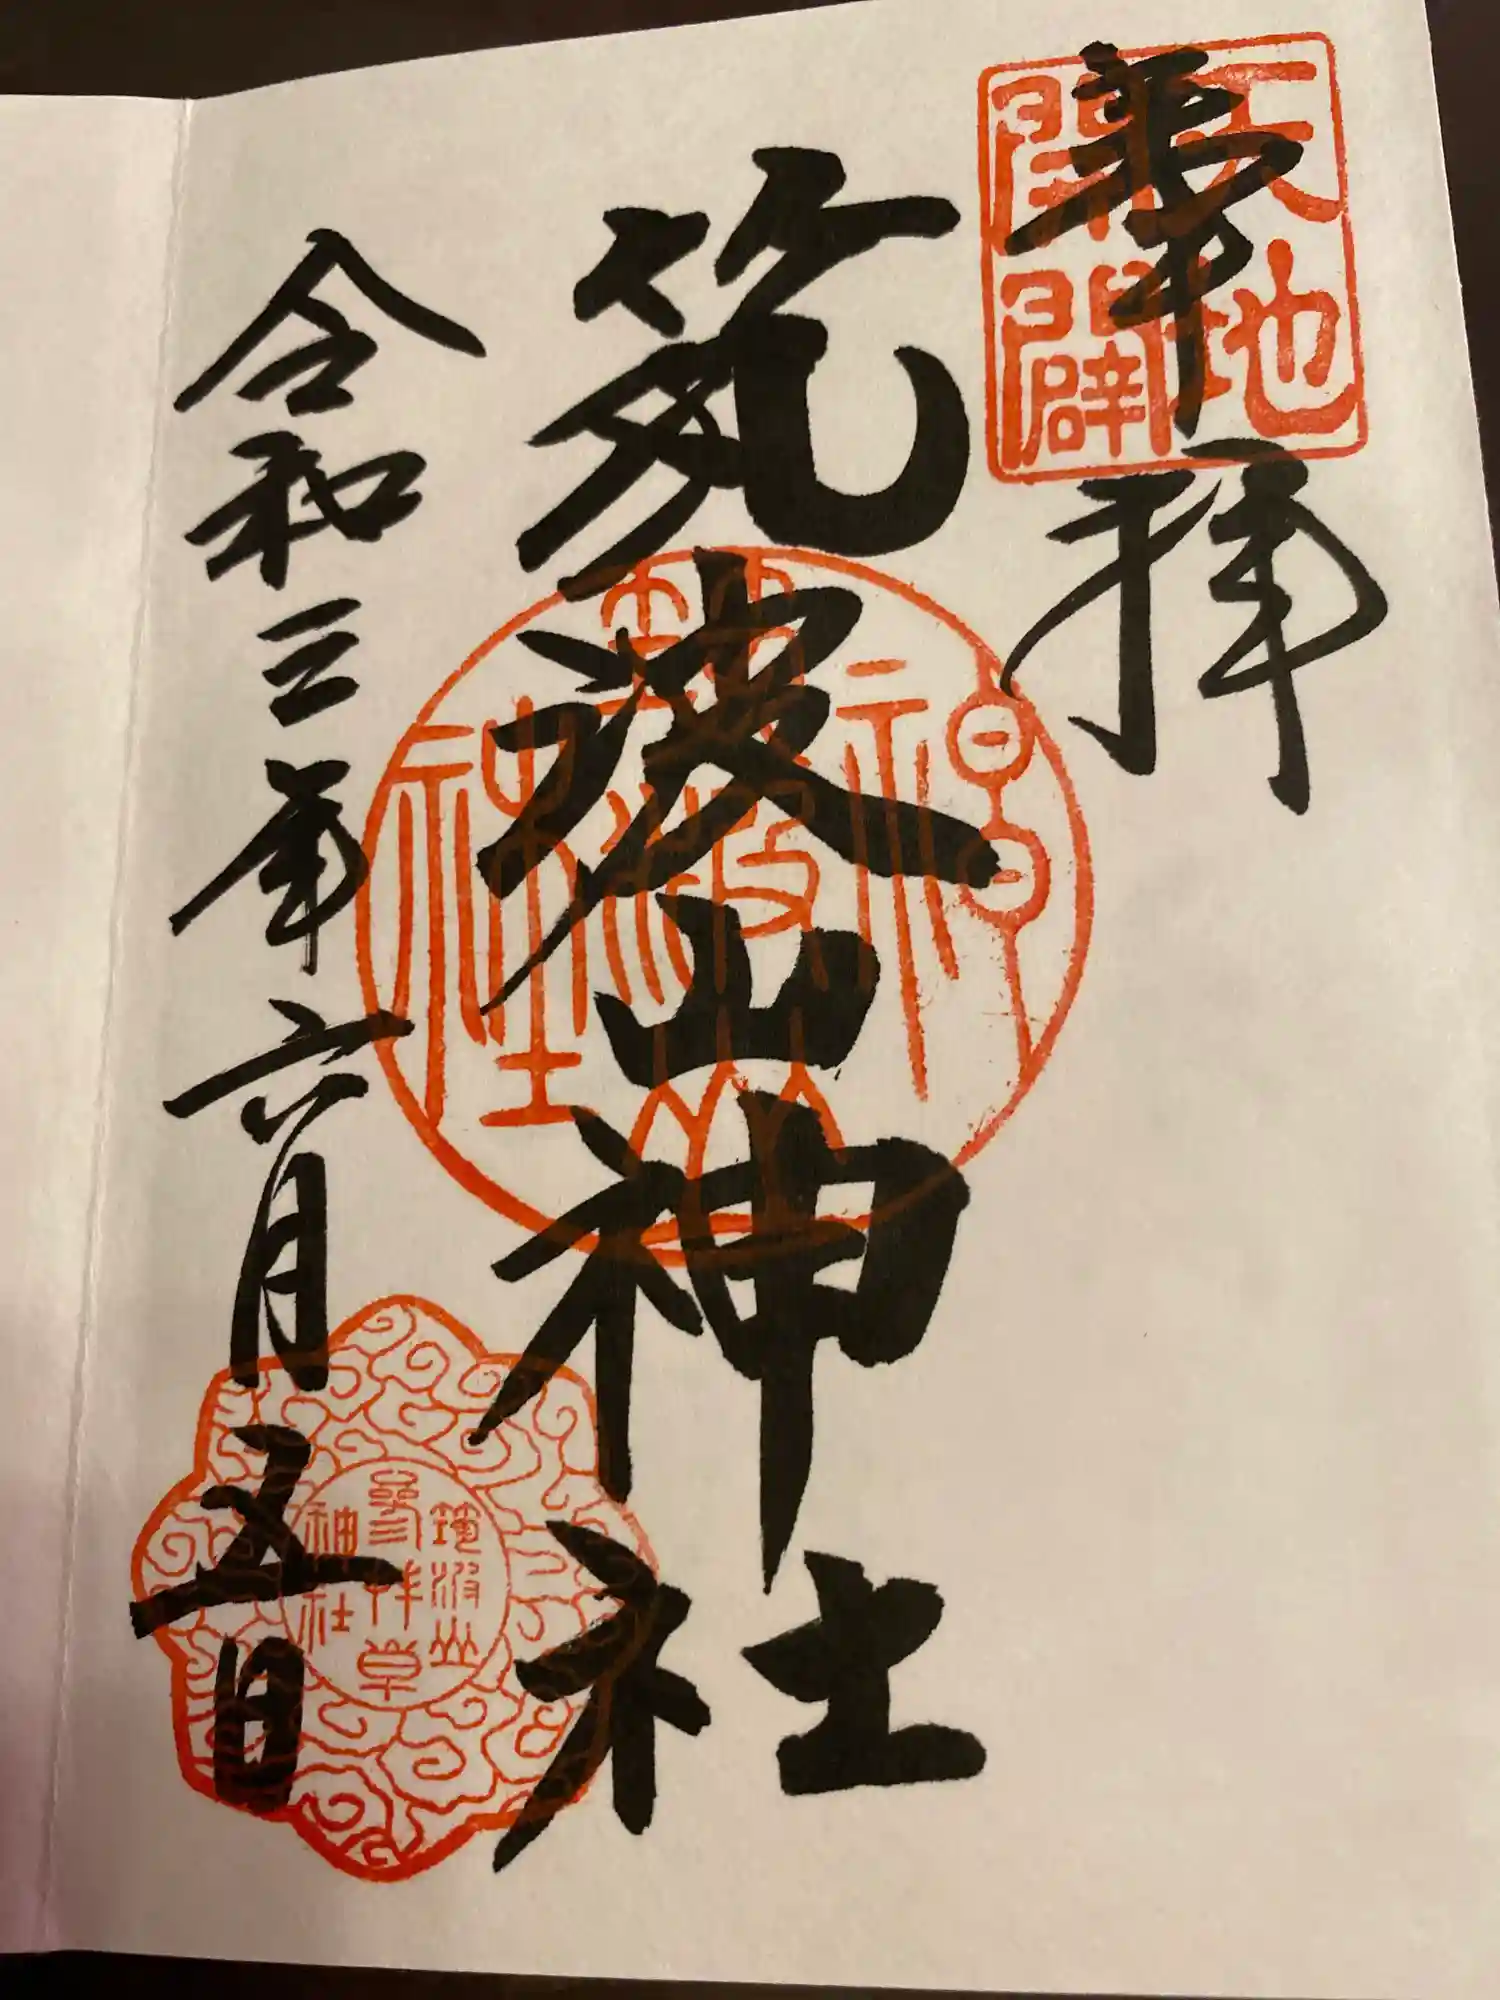 奉拝
天地
開闢
筑波山神社
筑波山
神社
令和三年六月五日
筑波山
神社